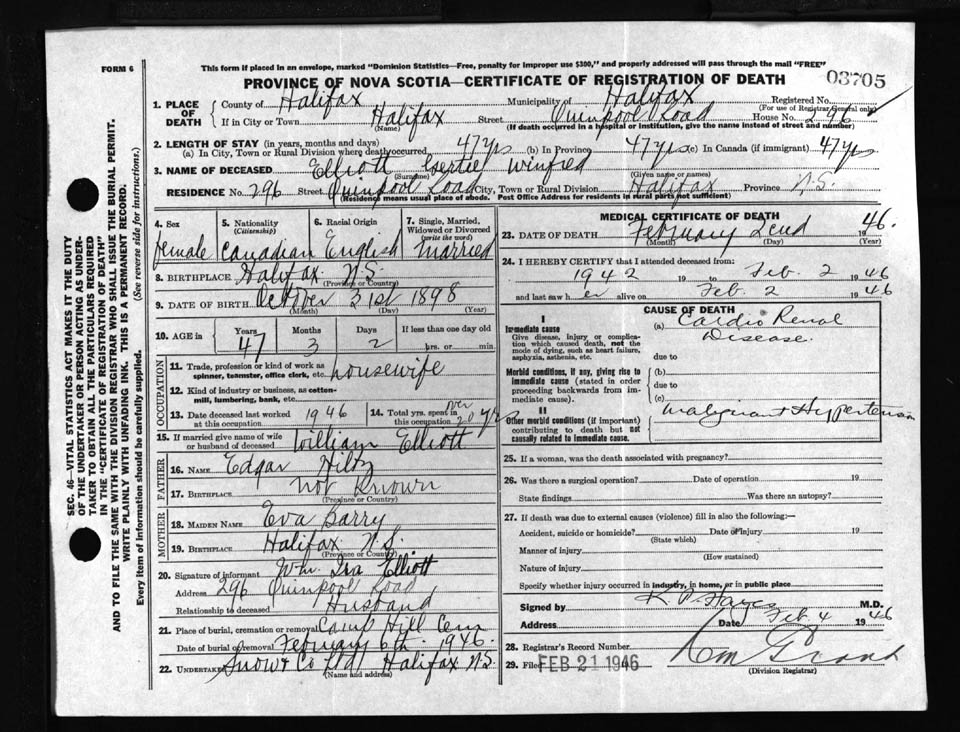 FORM 6
This form if placed in an envelope, marked "Dominion Statistics—Free, penalty for improper use $300," and properly addressed will pass through the mail "FREE"
PROVINCE OF NOVA SCOTIA—CERTIFICATE OF REGISTRATION OF DEATH
03705
1. PLACE OF DEATH County of Halifax Municipality of Halifax Registered No.
(For use of Registrar General only)
If in City or Town Halifax Street Quinpool Road House No. 296
(Name) (If death occurred in a hospital or institution, give the name instead of street and number)
2. LENGTH OF STAY (in years, months and days)
(a) In City, Town or Rural Division where death occurred 47 yrs (b) In Province 47 yrs (c) In Canada (if immigrant) 47 yrs
3. NAME OF DECEASED Elliott Gertie Winfred
(Surname) (Given name or names)
RESIDENCE No. 296 Street Quinpool Road City, Town or Rural Division Halifax Province N.S.
(Residence means usual place of abode. Post Office Address for residents in rural parts not sufficient)
4. Sex 5. Nationality 6. Racial Origin 7. Single, Married, Widowed or Divorced
(Citizenship) (write the word)
female Canadian English Married
8. BIRTHPLACE Halifax N.S.
(Province or Country)
9. DATE OF BIRTH October 31st 1898
(Month) (Day) (Year)
10. AGE in Years Months Days If less than one day old
47 3 2 hrs. or min.
OCCUPATION
11. Trade, profession or kind of work as spinner, teamster, office clerk, etc. housewife
12. Kind of industry or business, as cotton-mill, lumbering, bank, etc.
13. Date deceased last worked at this occupation 1946 14. Total yrs. spent in this occupation over 20 yrs
15. If married give name of wife or husband of deceased William Elliott
FATHER
16. NAME Edgar Hilby
17. BIRTHPLACE not known
(Province or Country)
MOTHER
18. MAIDEN NAME Eva Barry
19. BIRTHPLACE Halifax N.S.
(Province or Country)
20. Signature of informant Wm. Ira Elliott
Address 296 Quinpool Road
Relationship to deceased Husband
21. Place of burial, cremation or removal Camp Hill Cem
Date of burial or removal February 6th 1946
22. UNDERTAKER Snow & Co Ltd Halifax N.S.
(Name and address)
MEDICAL CERTIFICATE OF DEATH
23. DATE OF DEATH February 2end 1946.
(Month) (Day) (Year)
24. I HEREBY CERTIFY that I attended deceased from:
1942 19 to Feb. 2 1946
and last saw her alive on Feb. 2 1946
CAUSE OF DEATH
I
Immediate cause
Give disease, injury or complication which caused death, not the mode of dying, such as heart failure, asphyxia, asthenia, etc.
(a) Cardio Renal Disease.
due to
Morbid conditions, if any, giving rise to immediate cause (stated in order proceeding backwards from immediate cause).
(b)
due to
(c)
II
Other morbid conditions (if important) contributing to death but not causally related to immediate cause.
Malignant Hypertension
25. If a woman, was the death associated with pregnancy?
26. Was there a surgical operation? Date of operation 19
State findings Was there an autopsy?
27. If death was due to external causes (violence) fill in also the following:—
Accident, suicide or homicide? Date of injury 19
(State which)
Manner of injury
(How sustained)
Nature of injury
Specify whether injury occurred in industry, in home, or in public place
Signed by M.D.
Address Date Feb 4 1946
28. Registrar's Record Number
29. Filed FEB 21 1946
(Division Registrar)
SEC. 46—VITAL STATISTICS ACT MAKES IT THE DUTY
OF THE UNDERTAKER OR PERSON ACTING AS UNDER-
TAKER TO OBTAIN ALL THE PARTICULARS REQUIRED
IN THE "CERTIFICATE OF REGISTRATION OF DEATH"
AND TO FILE THE SAME WITH THE DIVISION REGISTRAR WHO SHALL ISSUE THE BURIAL PERMIT.
WRITE PLAINLY WITH UNFADING INK. THIS IS A PERMANENT RECORD.
Every item of information should be carefully supplied. (See reverse side for instructions.)